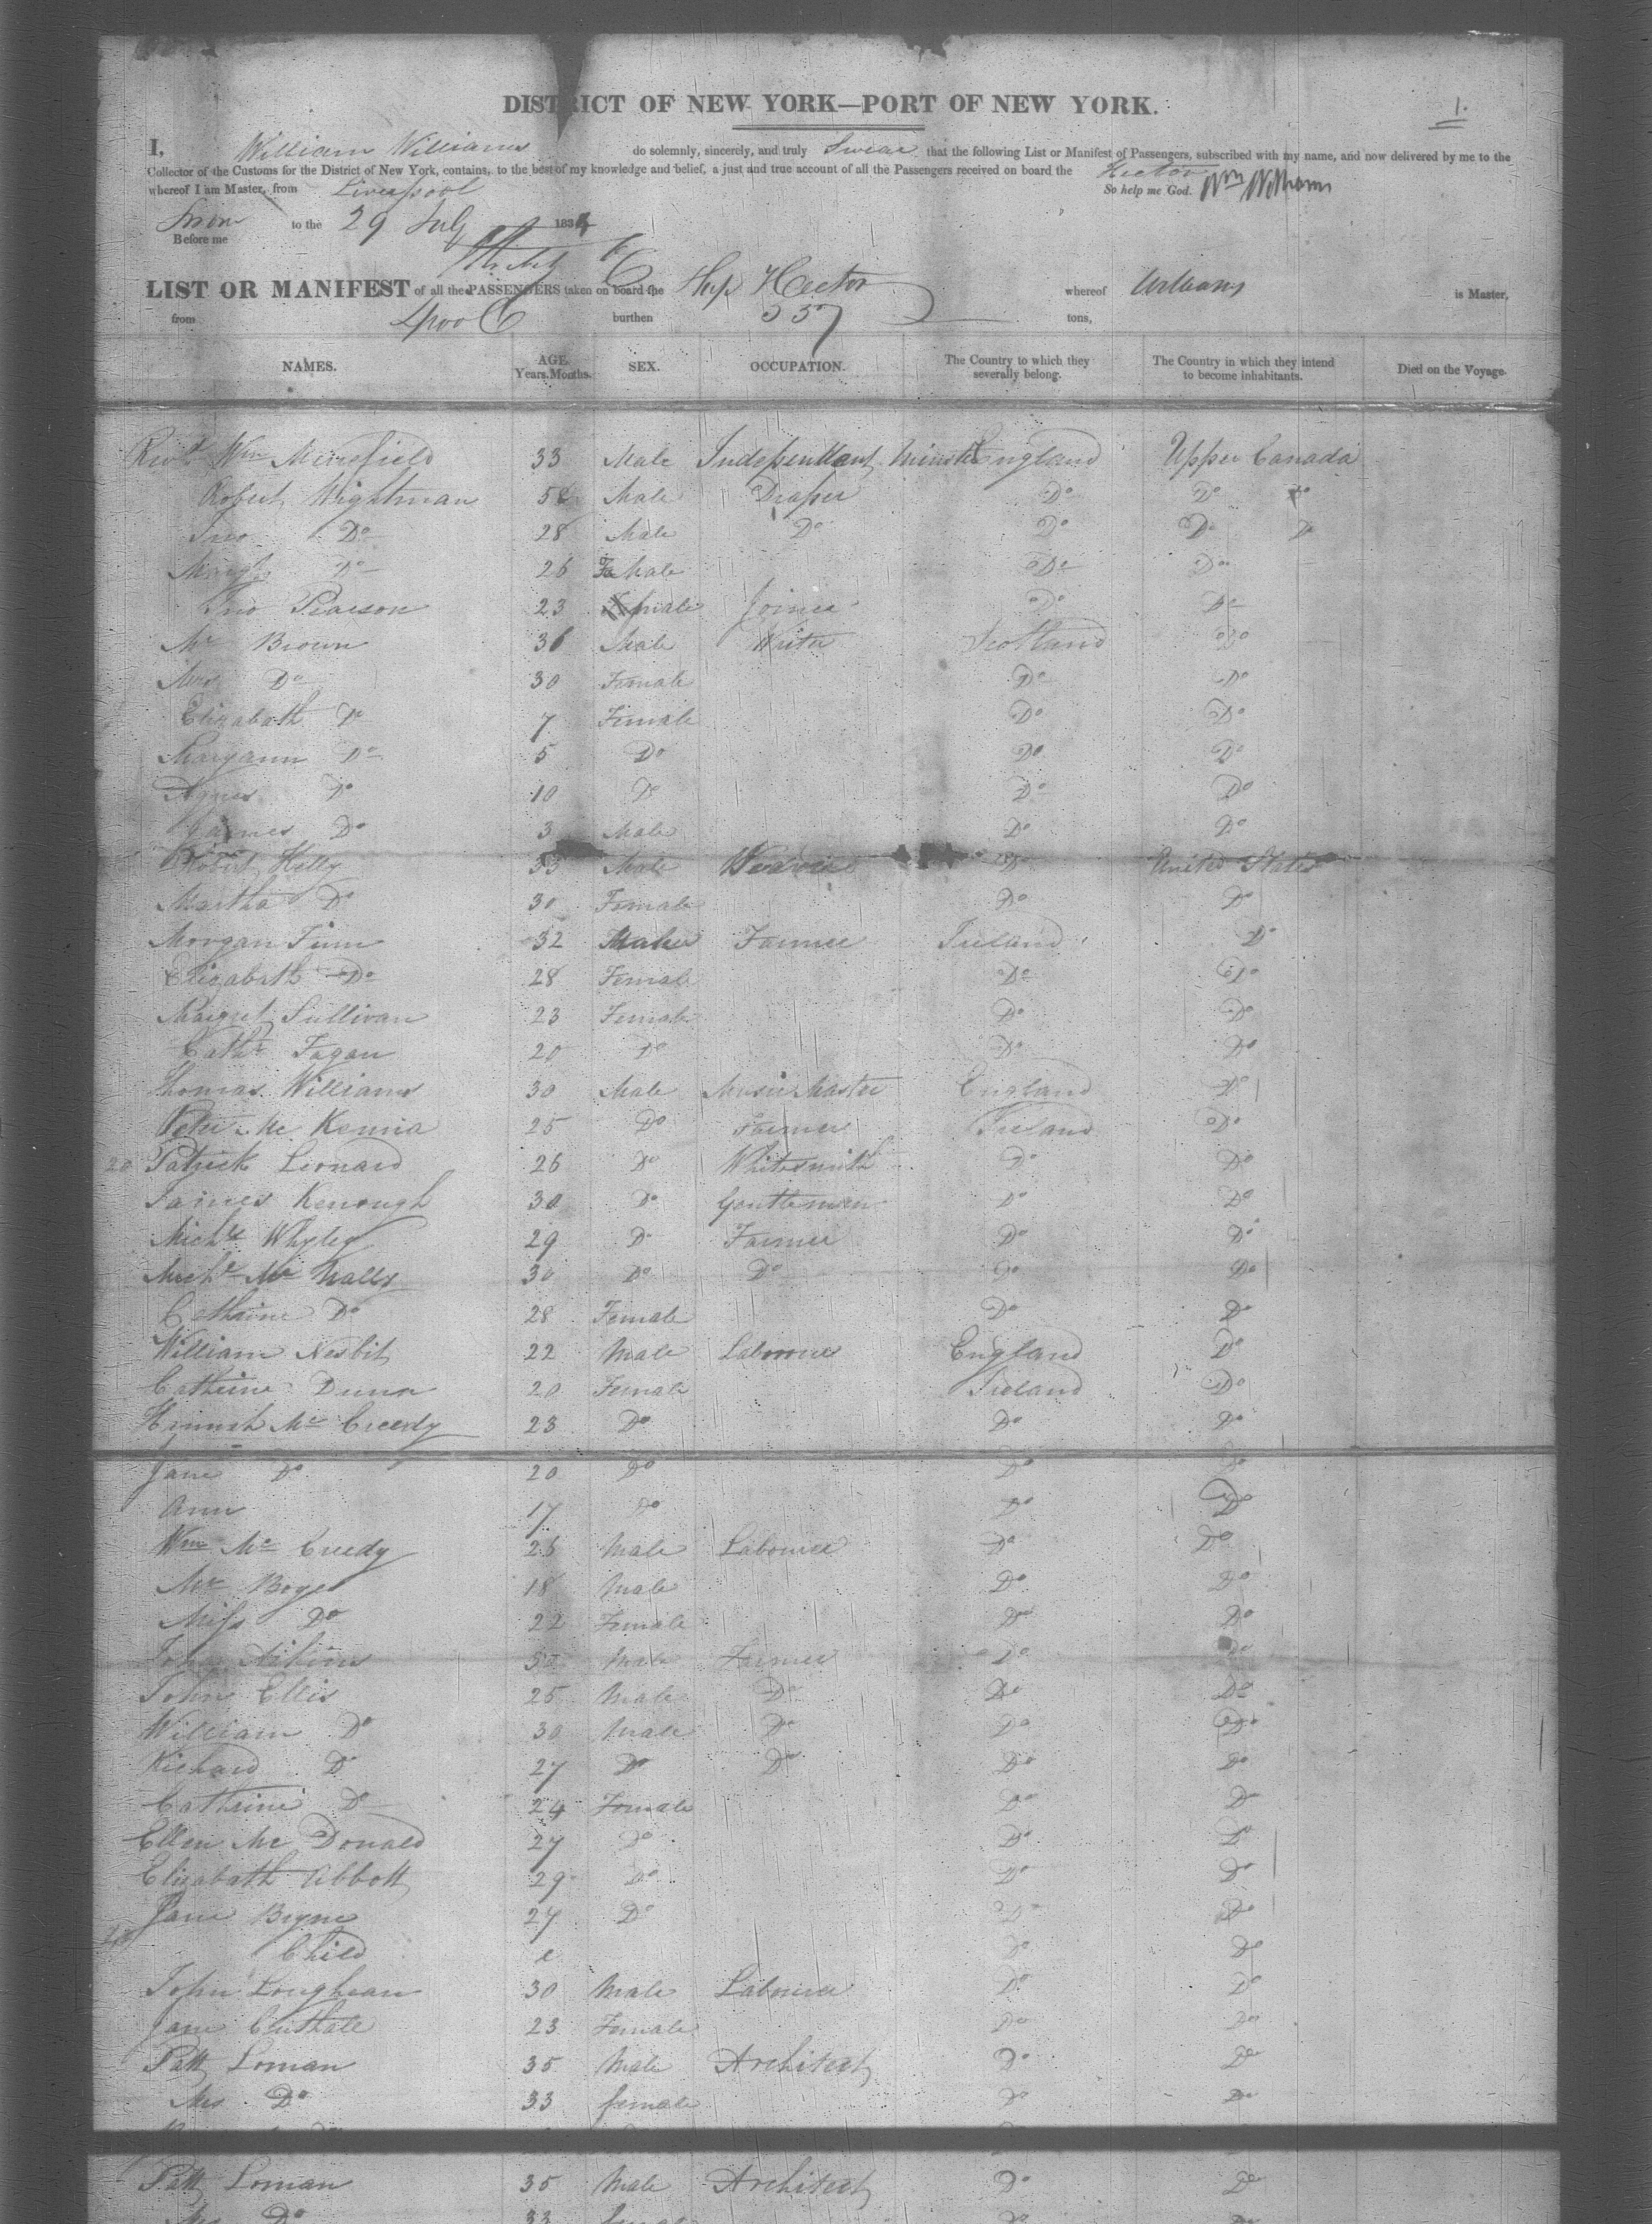 1.
DISTRICT OF NEW YORK—PORT OF NEW YORK.
I, William Williams do solemnly, sincerely, and truly Swear that the following List or Manifest of Passengers, subscribed with my name, and now delivered by me to the
Collector of the Customs for the District of New York, contains, to the best of my knowledge and belief, a just and true account of all the Passengers received on board the Hector
whereof I am Master, from Liverpool So help me God. Wm Williams
Sworn to the 29 July 1834
Before me
LIST OR MANIFEST of all the PASSENGERS taken on board the Ship Hector whereof Williams is Master,
from Lpool burthen 557 tons,
NAMES. AGE. Years. Months. SEX. OCCUPATION. The Country to which they severally belong. The Country in which they intend to become inhabitants. Died on the Voyage.
Revd Wm Merefield 33 Male Independant Minstr England Upper Canada
Robert Wightman 58 Male Draper Do Do Do
Jno Do 28 Male Do Do Do Do
Do 26 FeMale Do Do
Jno Pearson 23 male Joiner Do Do
Mr Brown 36 Male Writer Scotland Do
Mrs Do 30 Female Do Do
Elizabath Do 7 Female Do Do
Maryann Do 5 Do Do Do
Agnes Do 10 Do Do Do
James Do 3 Male Do Do
Robert Kelly 33 Male Do United States
Martha Do 30 Female Do Do
Morgan Finn 32 Male Farmer Ireland Do
Elizabath Do 28 Female Do Do
Margret Sullivan 23 Female Do Do
Cathe Fagan 20 Do Do Do
Thomas Williams 30 Male Music Master England Do
Peter Mc Kenna 25 Do Farmer Ireland Do
20 Patrick Leonard 26 Do Whitesmith Do Do
James Kenough 30 Do Gentleman Do Do
Michl Whyley 29 Do Farmer Do Do
Michl Mc Nally 30 Do Do Do Do
Cathrine Do 28 Female Do Do
William Nesbit 22 Male Labourer England Do
Catherine Dunn 20 Female Ireland Do
Hannah Mc Creedy 23 Do Do Do
Jane Do 20 Do Do Do
Ann 17 Do Do Do
Wm Mc Creedy 26 Male Labourer Do Do
Mr Boyer 18 Male Do Do
Miss Do 22 Female Do Do
John Male Farmer Do Do
John Ellis 25 Male Do Do Do
William Do 30 Male Do Do Do
Richard Do 27 Do Do Do Do
Cathrine Do 24 Female Do Do
Ellen Mc Donald 27 Do Do Do
Elizabath Abbott 29 Do Do Do
Jane Byrne 27 Do Do Do
Child Do Do
John Loughran 30 Male Labourer Do Do
Jane 23 Female Do Do
Patt Loman 35 Male Architect Do Do
Mrs Do 33 female Do Do
Patt Loman 35 Male Architect Do Do
Mrs Do 33 female Do Do